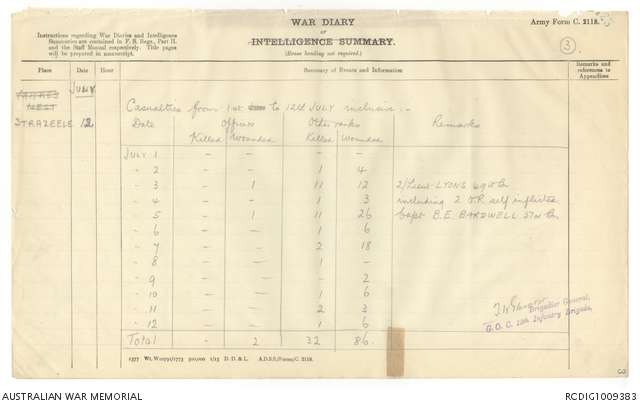 WAR DIARY
or
INTELLIGENCE SUMMARY.
(Erase heading not required.)
Army Form C. 2118.
Instructions regarding War Diaries and Intelligence
Summaries are contained in F. S. Regs., Part II.
and the Staff Manual respectively. Title pages
will be prepared in manuscript.
3
Place Date Hour Summary of Events and Information Remarks and references to Appendices
JULY
STRAZEELE 12
Casualties from 1st to 12th JULY inclusive :-
Date Officers Other ranks Remarks
Killed Wounded Killed Wounded
JULY 1 - - - -
" 2 - - 1 4
" 3 - 1 11 12 2/Lieut LYONS
" 4 - - 1 3 including 2 O.R. self inflicted
" 5 - 1 11 26 Capt B.E. BARDWELL 57th Bn
" 6 - - 1 6
" 7 - - 2 18
" 8 - - 1 -
" 9 - - - 2
" 10 - - 1 6
" 11 - - 2 3
" 12 - - 1 6
Total - 2 32 86.
Brigadier General,
G.O.C. 15th Infantry Brigade,
D. D. & L. A.D.S.S./Forms/C. 2118.
AUSTRALIAN WAR MEMORIAL
RCDIG1009383